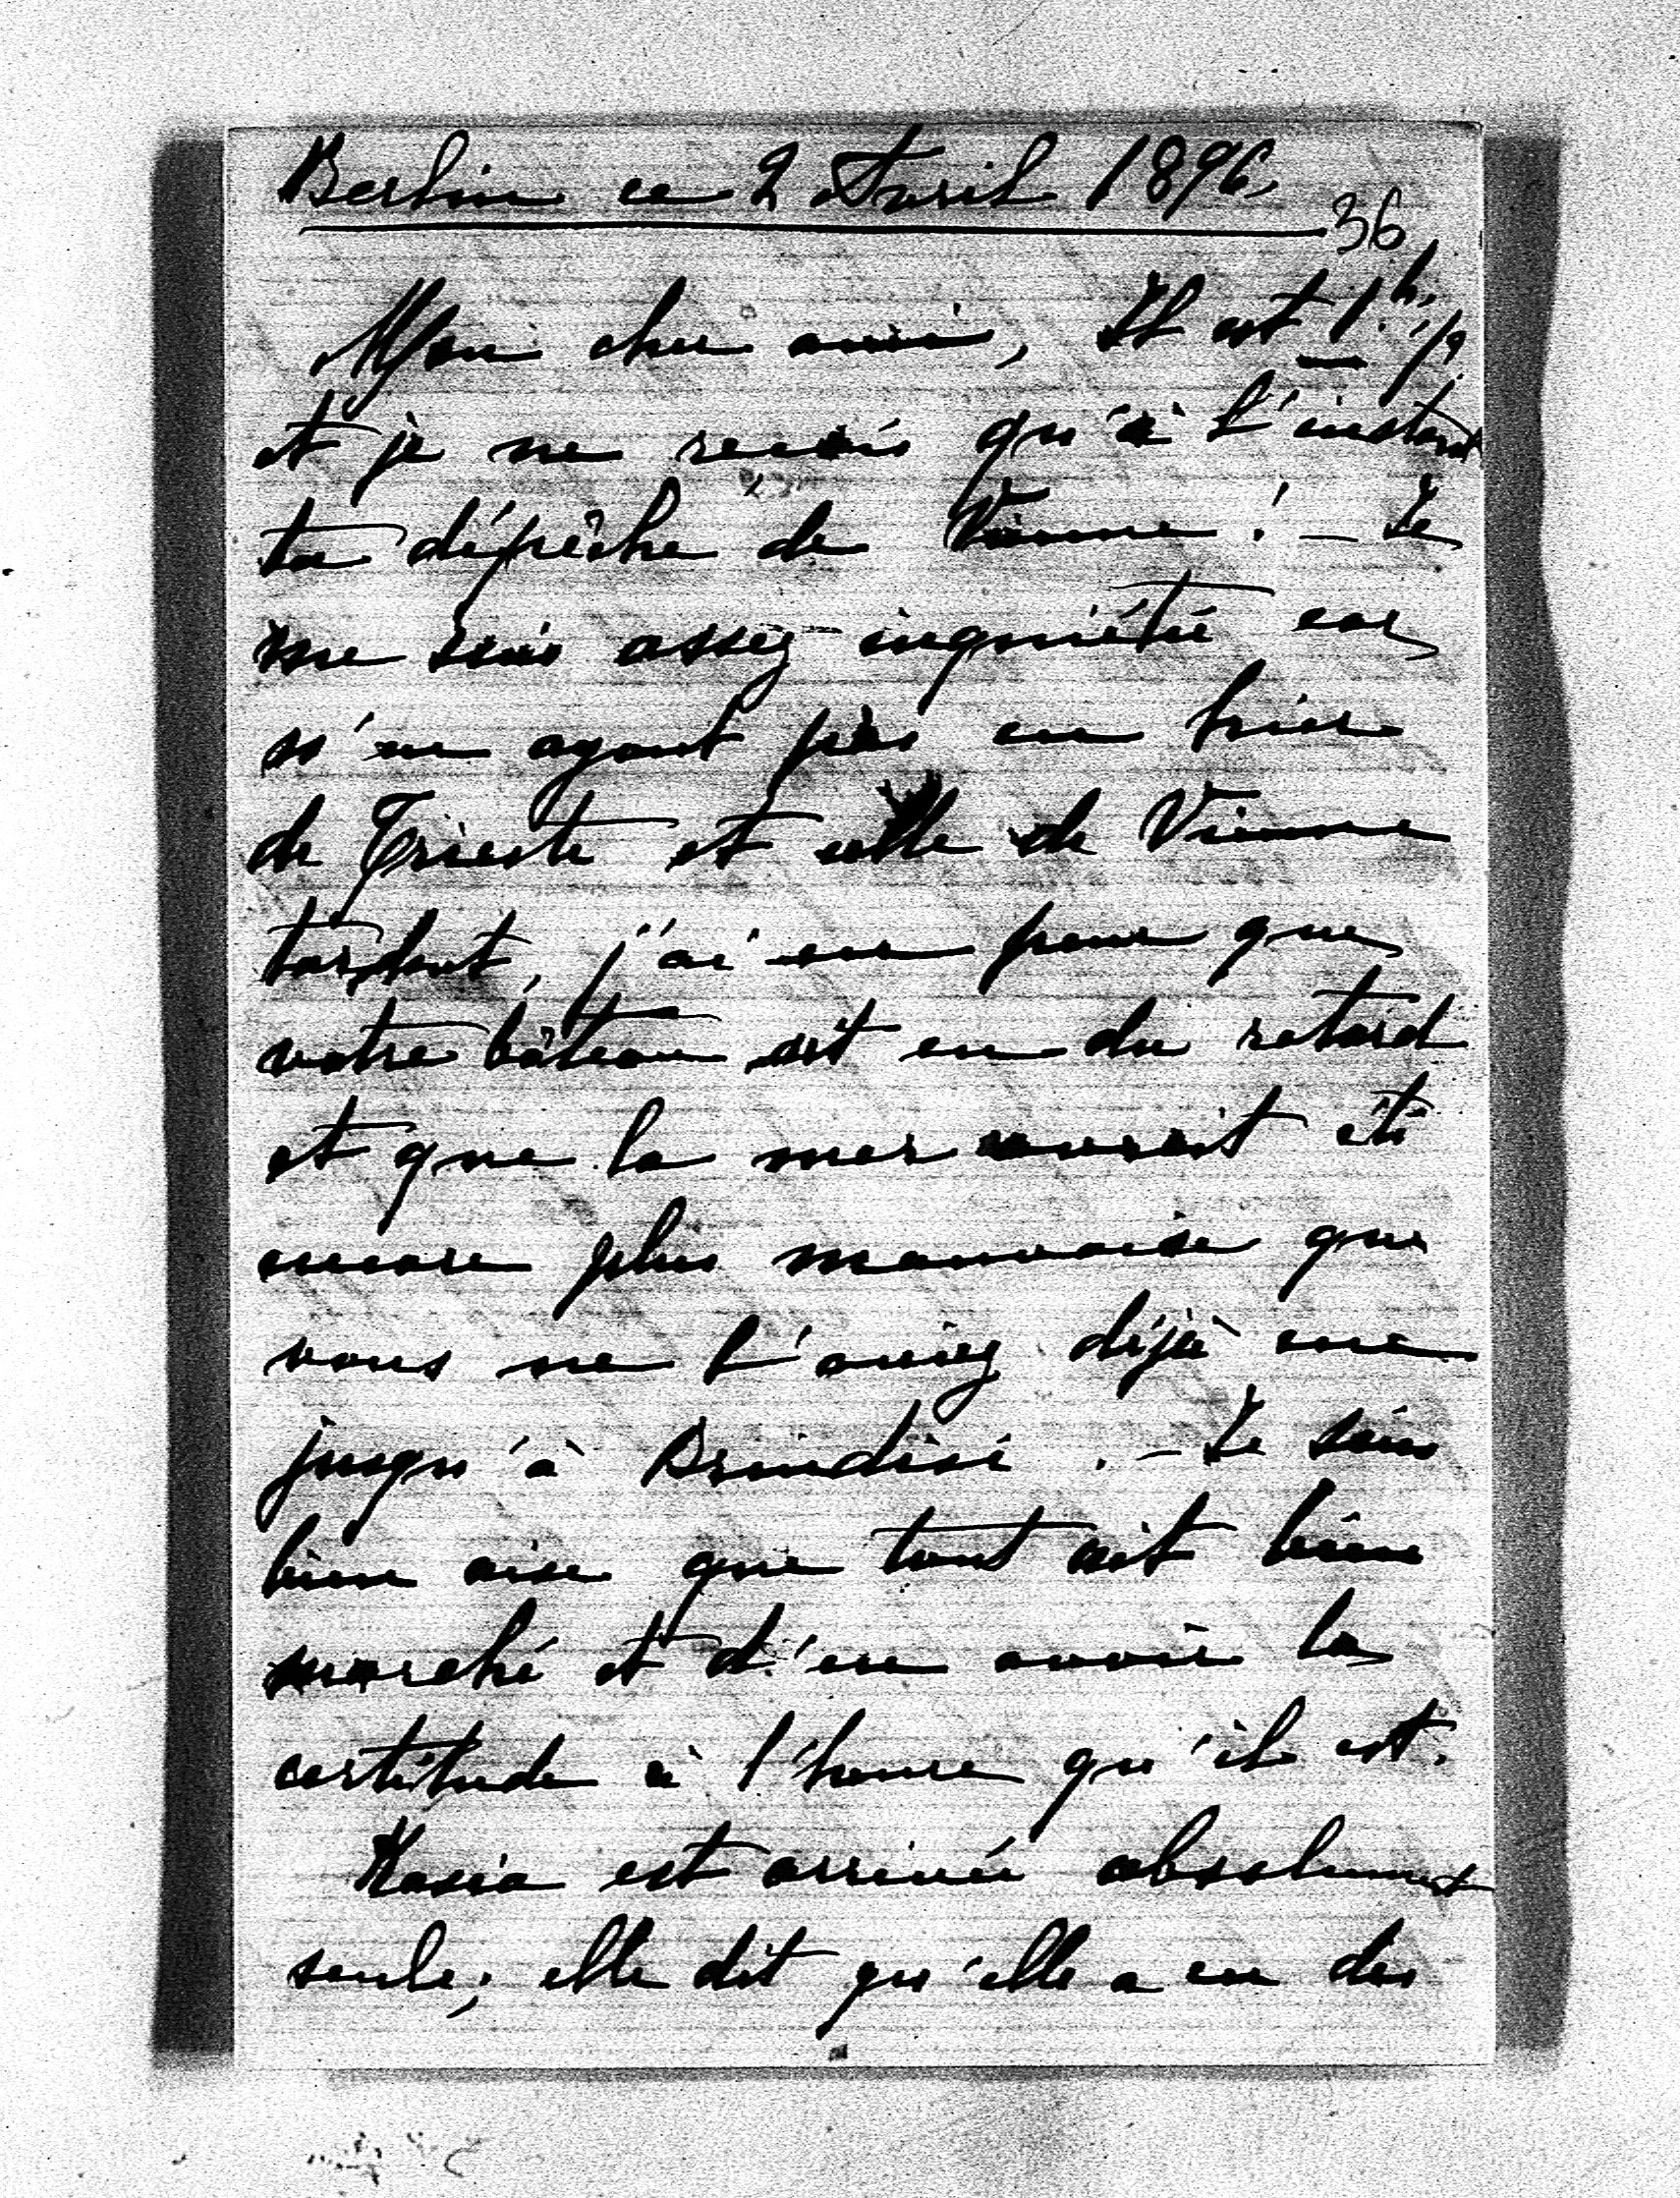 Berlin ce 2 Avril 1896.
36
Mon cher ami, Il est 1.h. 1/2
et je ne reçois qu'à l'instant
ta dépêche de Vienne! – Je
me suis assez inquiété car
n'en ayant pas eu hier
de Trieste et celle de Vienne
tardant, j'ai eu peur que
votre bâteau ait eu du retard
et que la mer aurait été
encore plus mauvaise que
vous ne l'aviez déjà eue
jusqu'à Brindisi. – Je suis
bien aise que tout ait bien
marché et d'en avoir la
certitude à l'heure qu'il est.
Kasia est arrivée absolument
seule; elle dit qu'elle a eu des